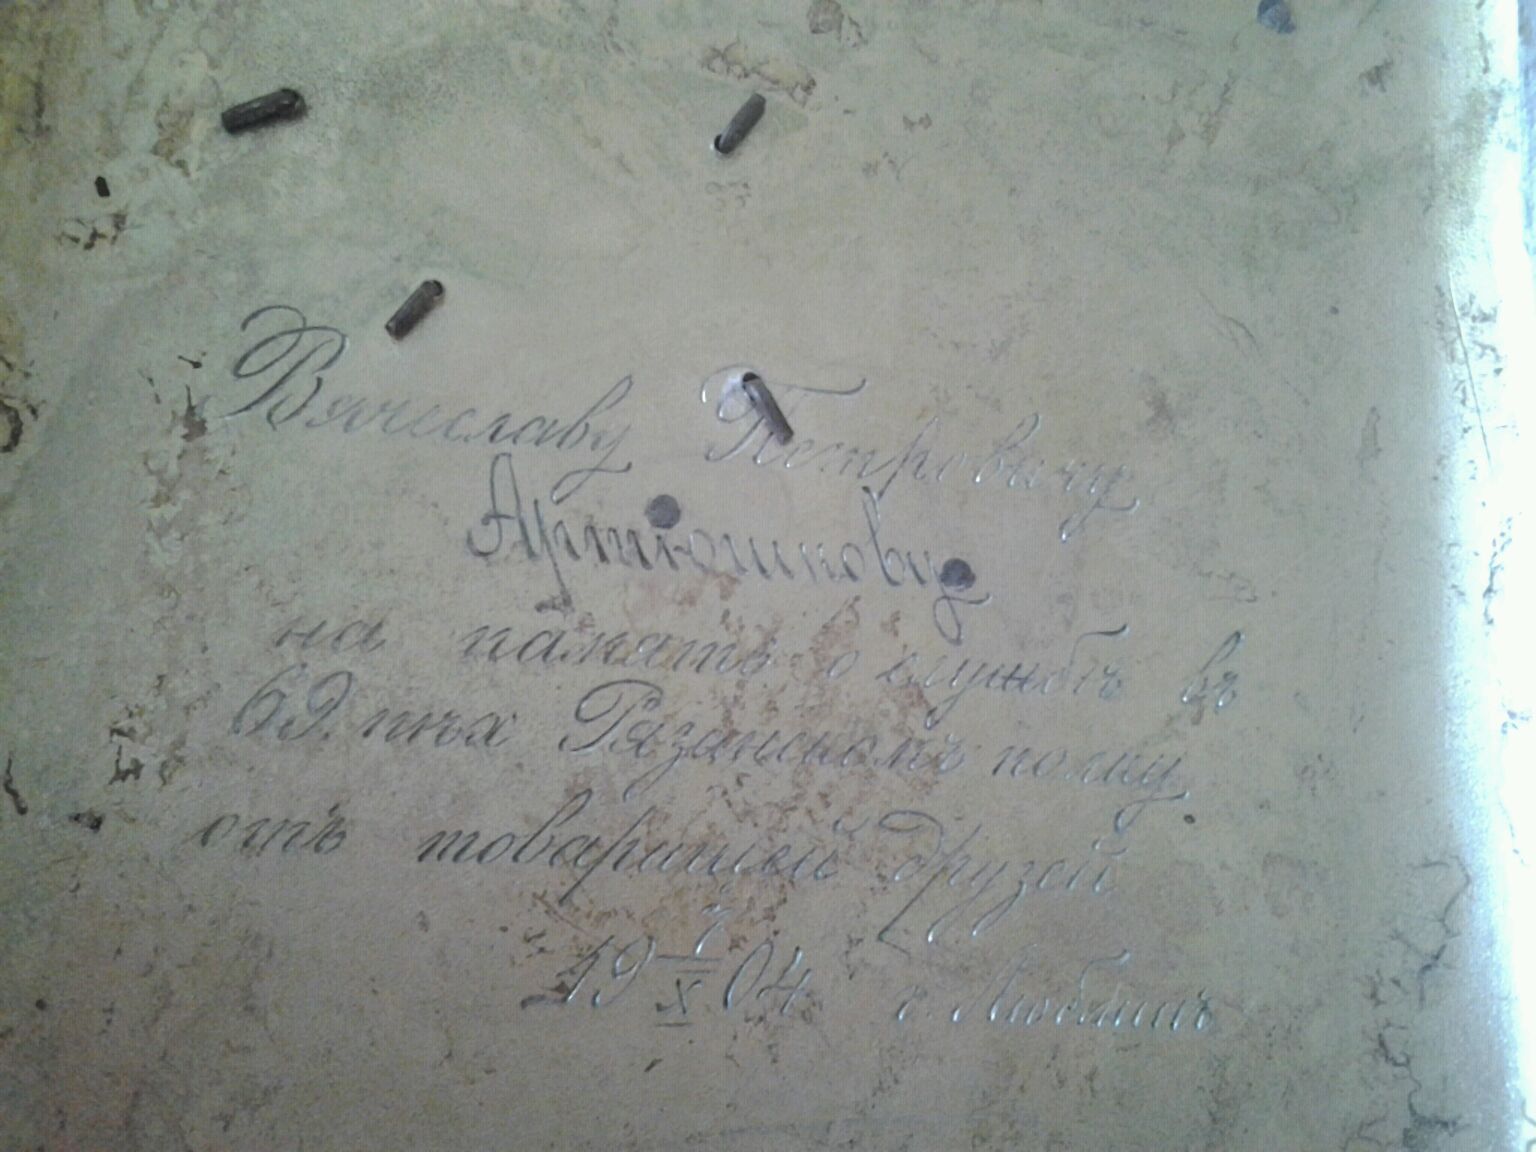 Вячеславу Петровичу
Артюшкову
на память о службѣ въ
69. пѣх Рязанскомъ полку
отъ товарищей друзей
19 7/X 04 г. Люблинъ